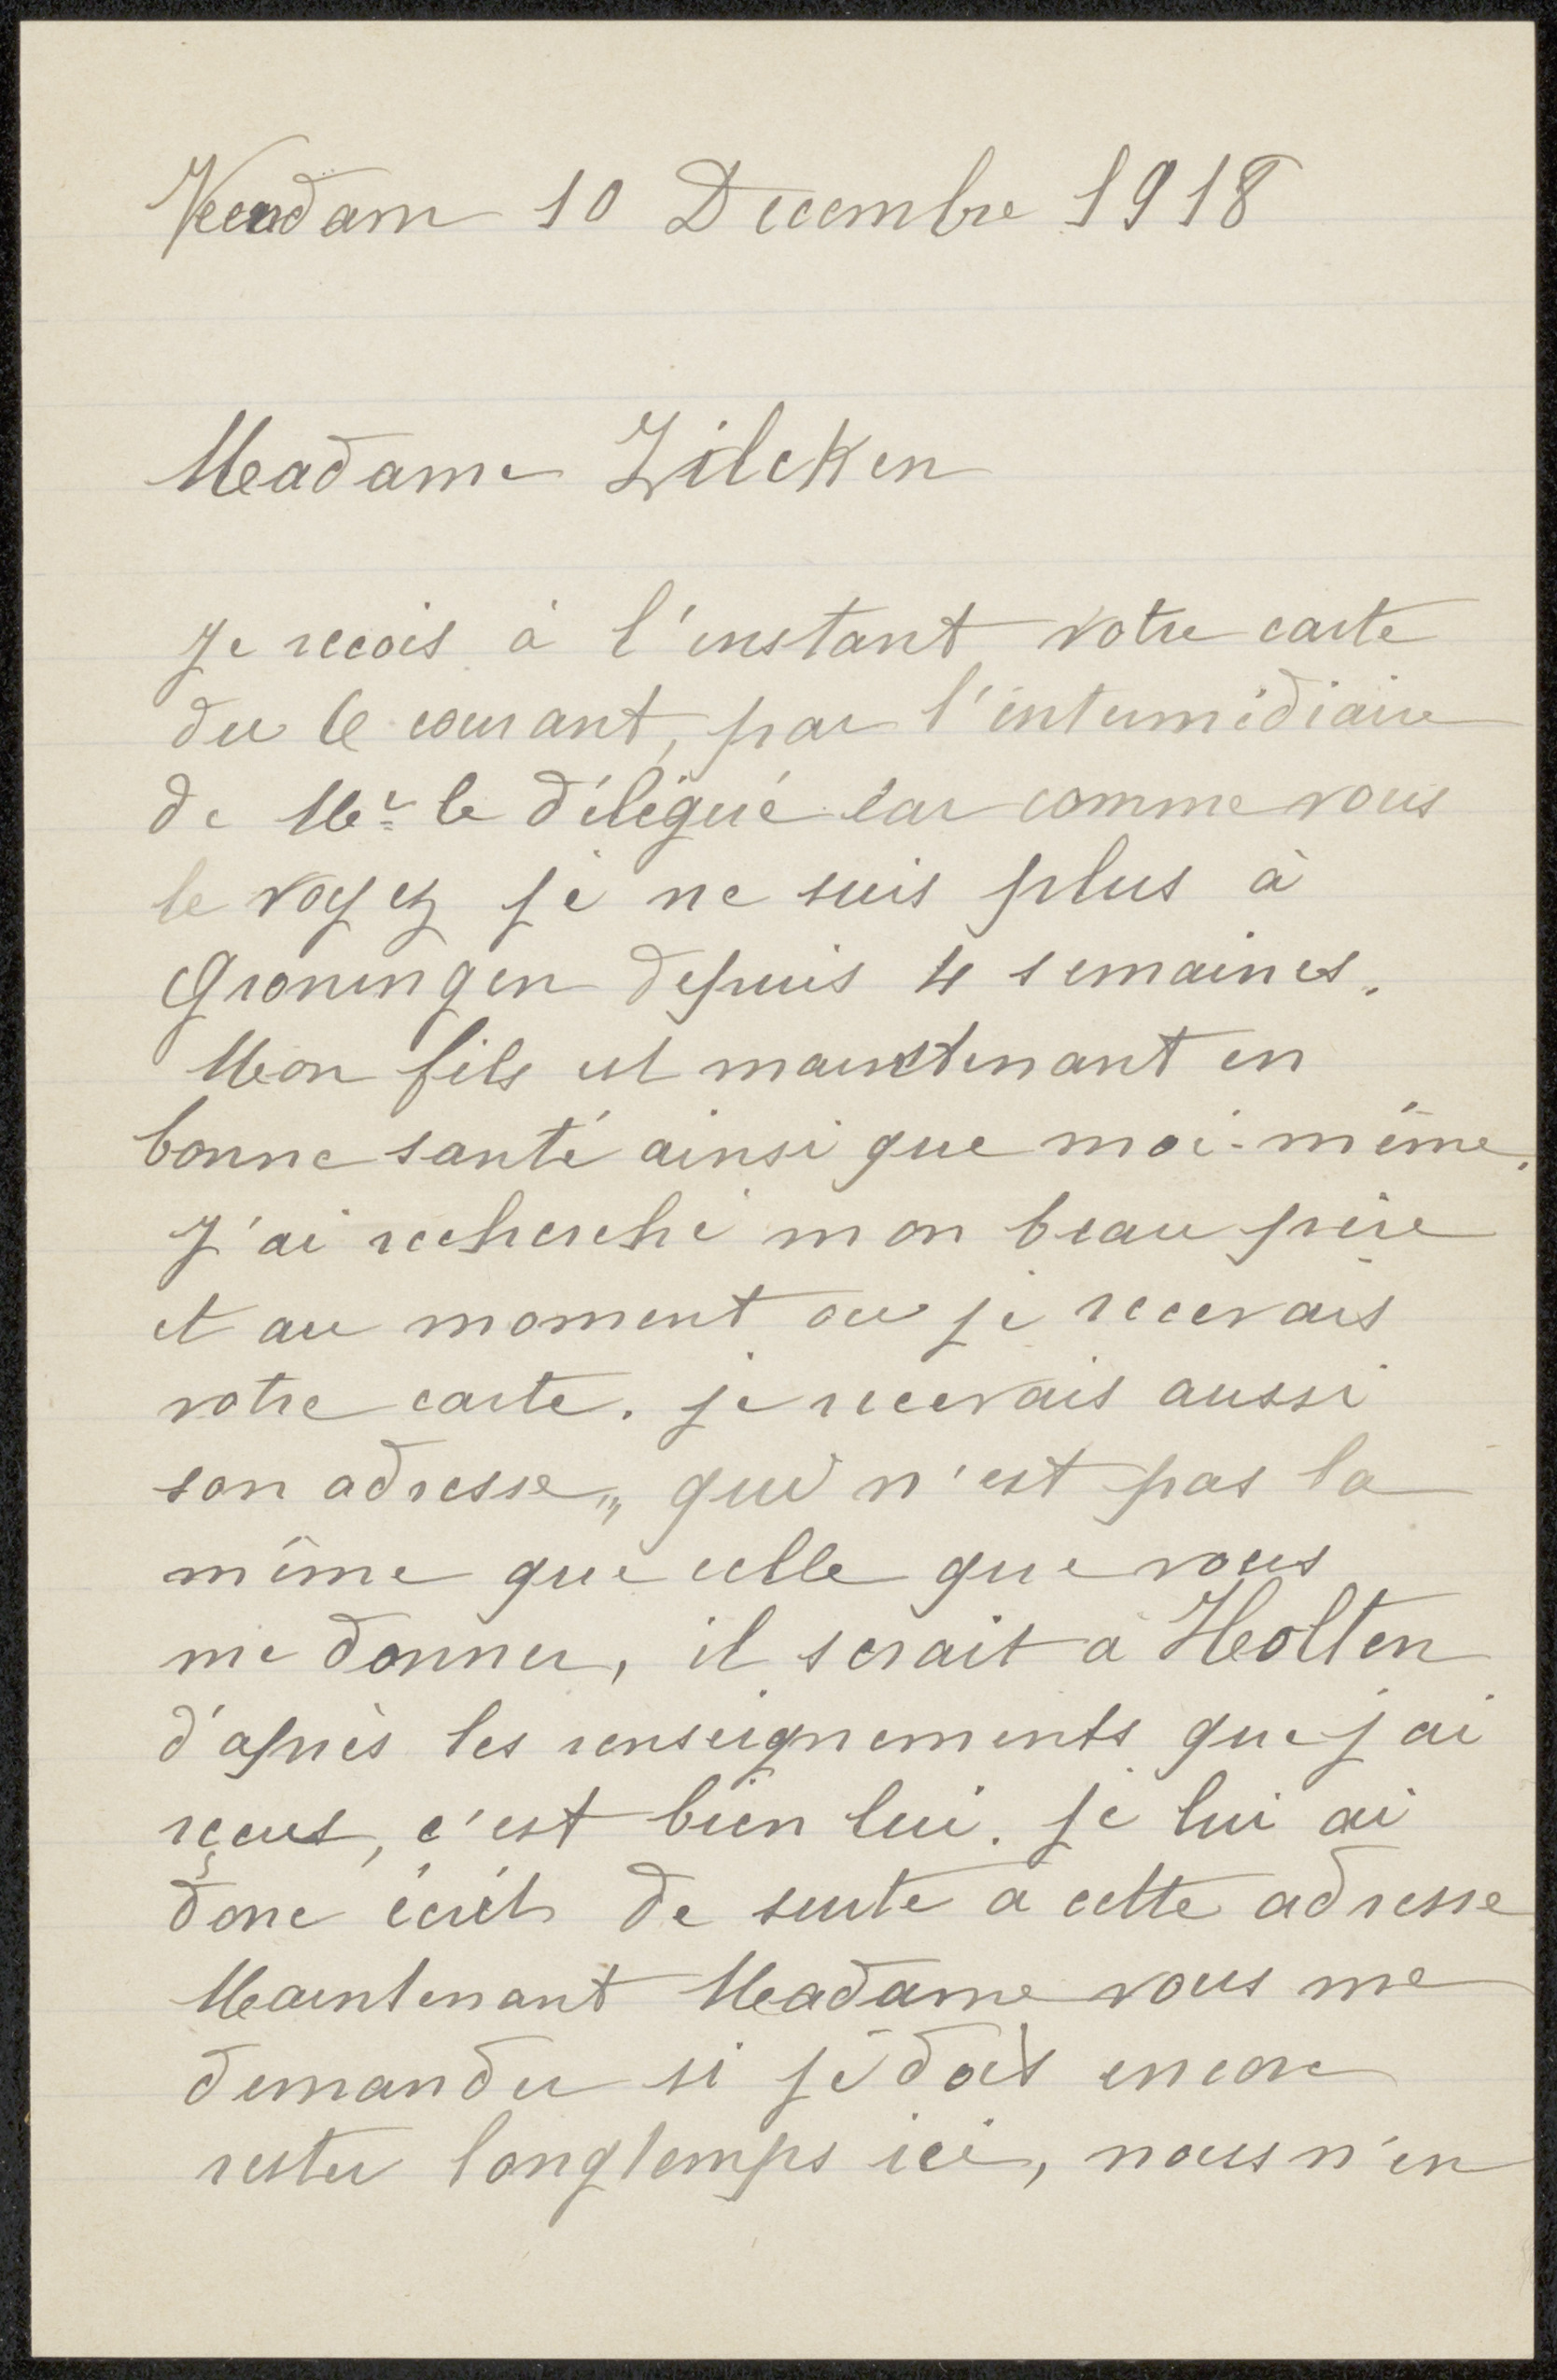 Veendam 10 Decembre 1918
Madame Zilcken
Je recois à l'instant votre carte
du 6 courant, par l'intermédiaire
de Mr le délégué car comme vous
le voyez je ne suis plus à
Groningen depuis 4 semaines.
Mon fils est maintenant en
bonne santé ainsi que moi-même.
J'ai recherché mon beau père
et au moment ou je recevais
votre carte. je recevais aussi
son adresse,, qui n'est pas la
même que celle que vous
me donner, il serait à Holten
d'après les renseignements que j'ai
reçus, c'est bien lui. je lui ai
donc écrit de suite a cette adresse
Maintenant Madame vous me
demander si je dois encore
rester longtemps ici, nous n'en